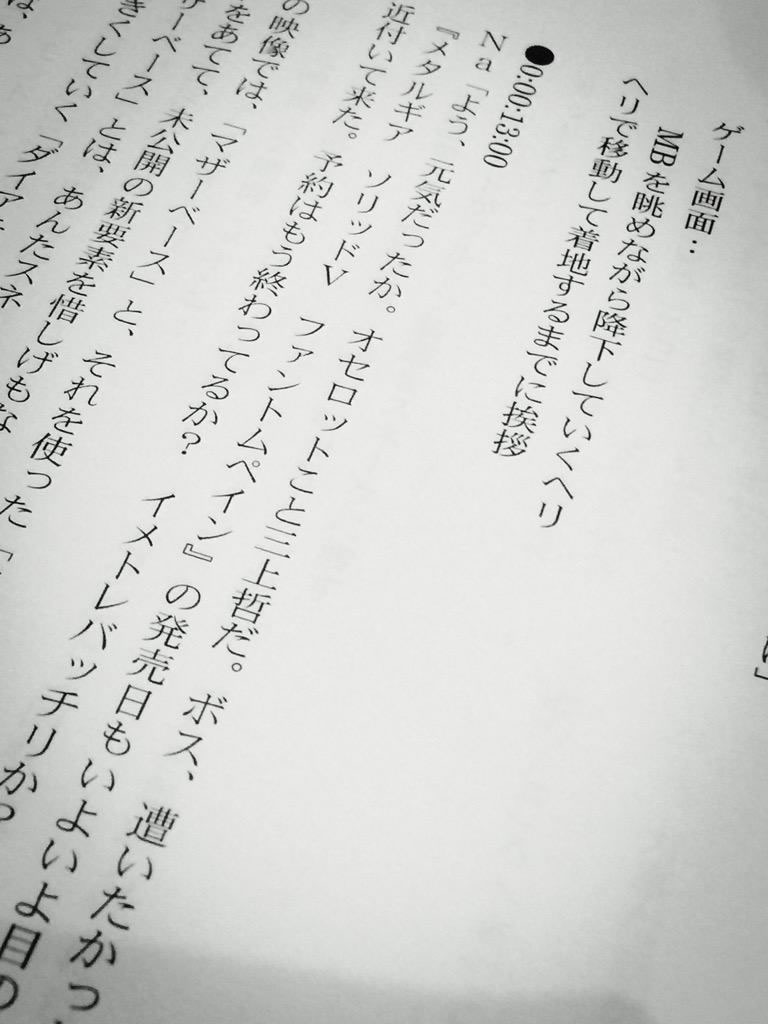 ゲーム画面：
MBを眺めながら降下していくヘリ
ヘリで移動して着地するまでに挨拶
●0:00:13:00
Na「よう、元気だったか。オセロットこと三上哲だ。ボス、遭いたかっ
『メタルギア ソリッドV ファントムペイン』の発売日もいよいよ目の
近付いて来た。予約はもう終わってるか？ イメトレバッチリか
の映像では、「マザーベース」と、それを使った「
をあてて、未公開の新要素を惜しげもな
ザーベース」とは、あんたスネ
きくしていく「ダイア
は、あ